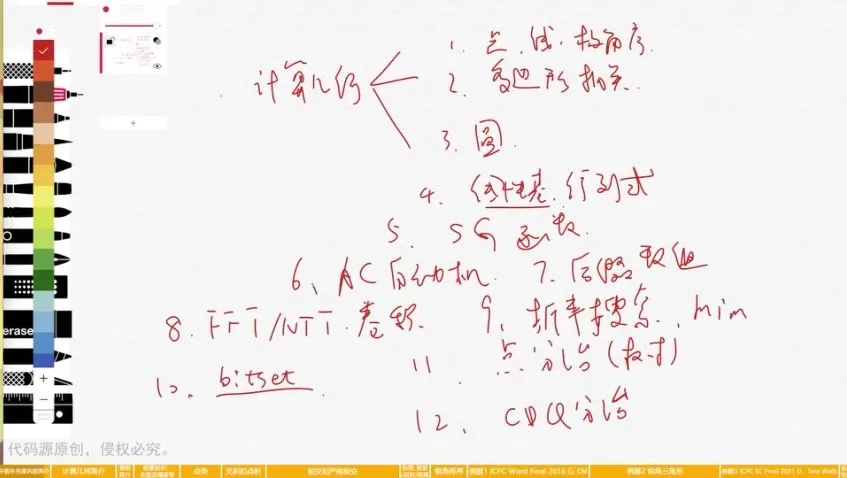 1. 点.线.极角序.
计算几何
2. 多边形相关.
3. 圆.
4. 线性基.行列式
5. SG函数.
6、AC自动机. 7. 后缀数组
8. FFT/NTT.卷积. 9. 折半搜索. mim
10. bitset 11. 点分治(树)
12、CDQ分治
erase
+
−
代码源原创，侵权必究。
计算几何简介 点类 叉积的点积 相交的严格相交 极角排序 例题1 ICPC Word Final 2016 G, Oil 例题2 锐角三角形 例题3 ICPC EC Final 2021 D, Two Walls